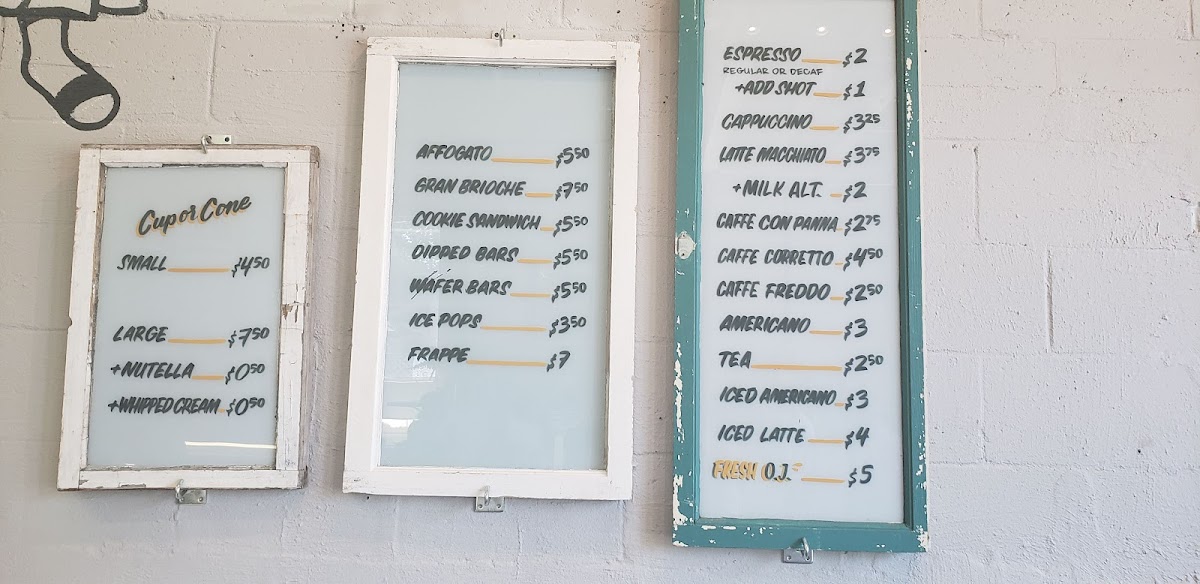 Cup or Cone
SMALL $4.50
LARGE $7.50
+NUTELLA $0.50
+WHIPPED CREAM $0.50
AFFOGATO $5.50
GRAN BRIOCHE $7.50
COOKIE SANDWICH $5.50
DIPPED BARS $5.50
WAFER BARS $5.50
ICE POPS $3.50
FRAPPE $7
ESPRESSO $2
REGULAR OR DECAF
+ADD SHOT $1
CAPPUCCINO $3.25
LATTE MACCHIATO $3.75
+MILK ALT. $2
CAFFE CON PANNA $2.75
CAFFE CORRETTO $4.50
CAFFE FREDDO $2.50
AMERICANO $3
TEA $2.50
ICED AMERICANO $3
ICED LATTE $4
FRESH O.J. $5